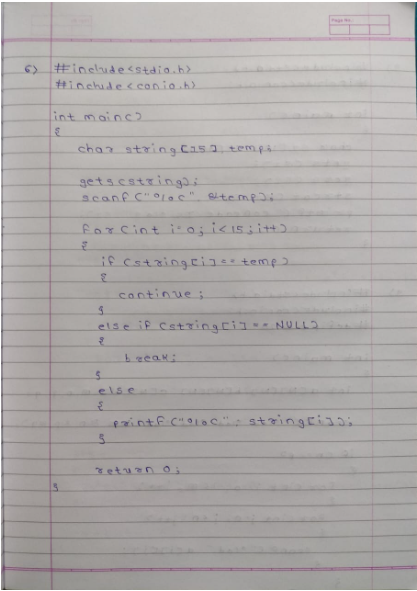 Page No.:
6) #include<stdio.h>
#include<conio.h>
int main()
{
char string[15], temp;
gets(string);
scanf("%c", &temp);
for(int i=0; i<15; i++)
{
if (string[i]==temp)
{
continue;
}
else if (string[i] == NULL)
{
break;
}
else
{
printf("%c", string[i]);
}
return 0;
}